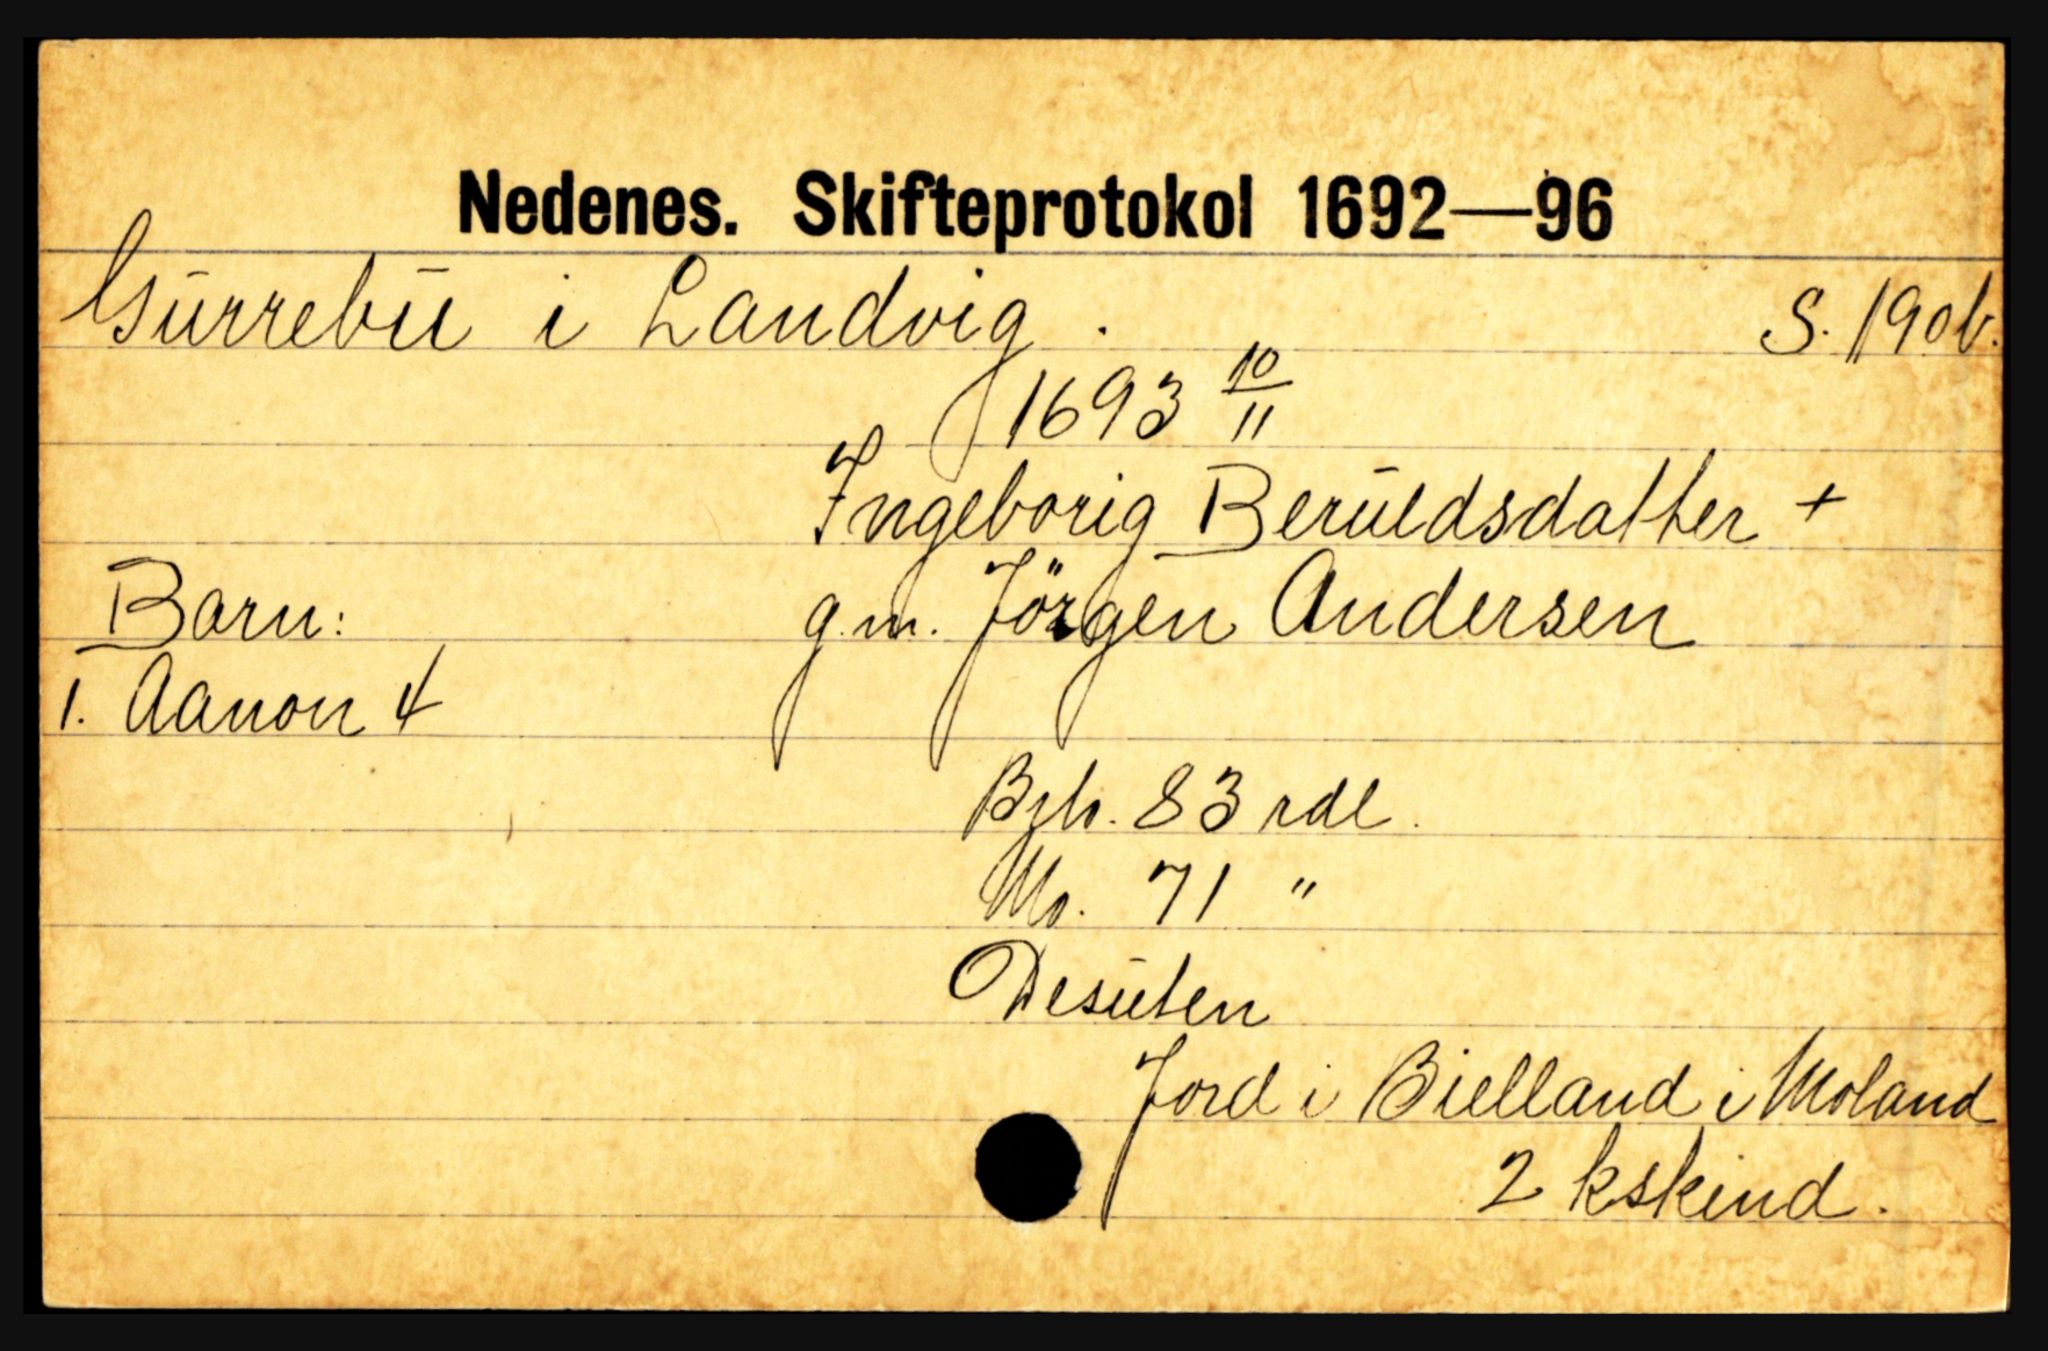 Nedenes. Skifteprotokol 1692—96
Gurrebu i Landvig. S. 190b.
1693 10/11
Ingeborig Beruldsdatter +
g.m. Jörgen Andersen
Barn:
1. Aanon 4
Brb. 83 rdl.
Mo. 71 "
Desuten
Jord i Bielland i Moland
2 kskind.